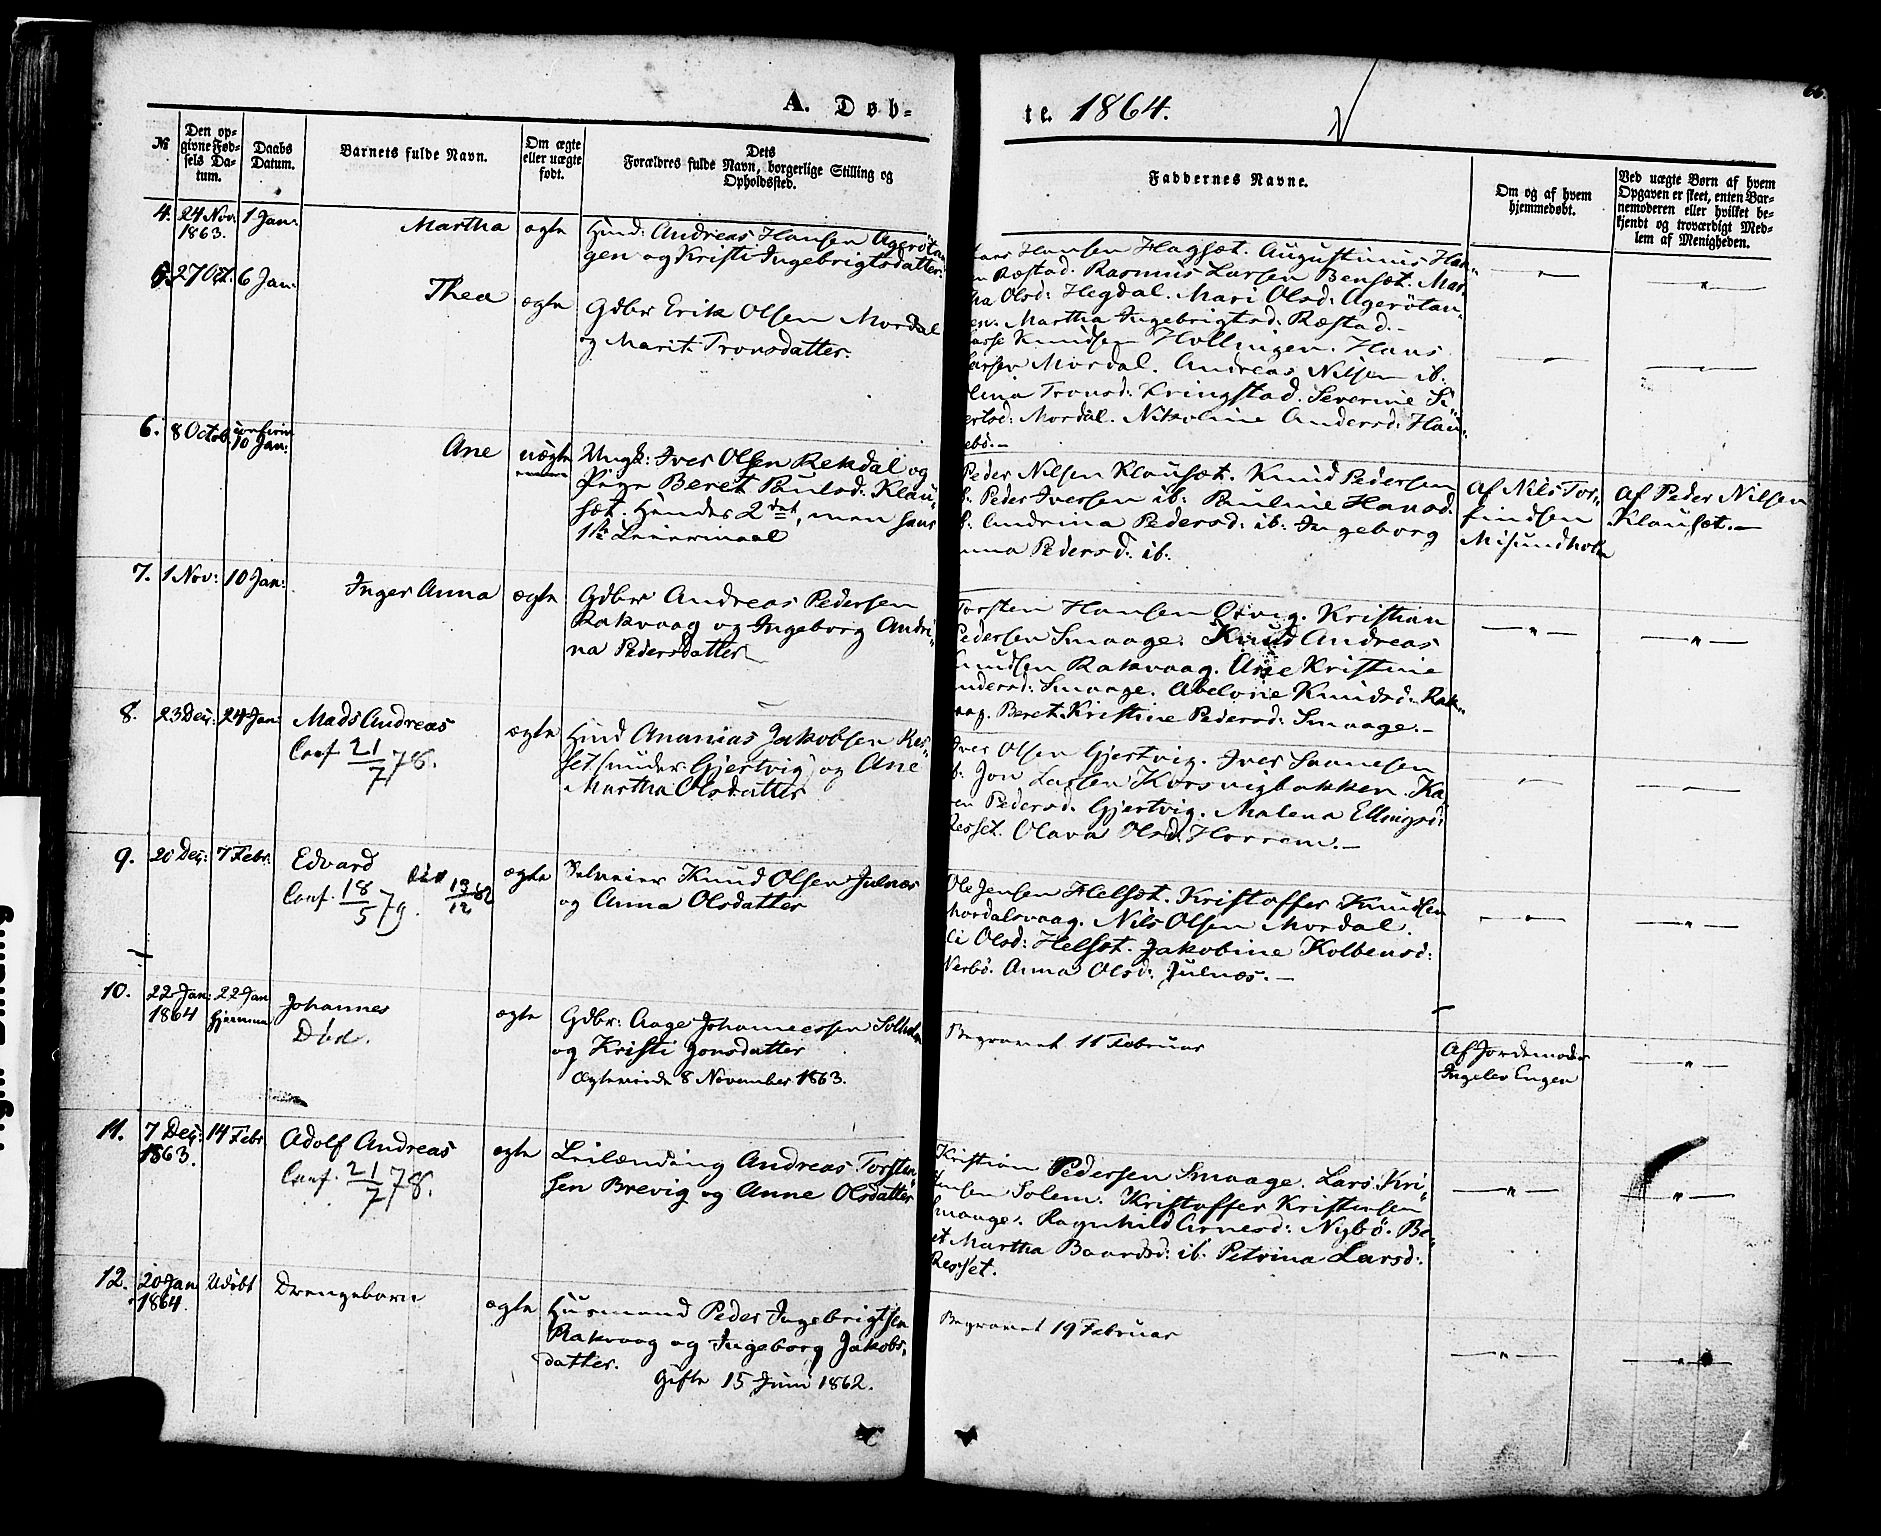 A. Døb-
te. 1864.
66.
№
Den op-
givne Fød-
sels Da-
tum.
Daabs
Datum.
Barnets fulde Navn.
Om ægte
eller uægte
født.
Dets
Forældres fulde Navn, borgerlige Stilling og
Opholdssted.
Faddernes Navne.
Om og af hvem
hjemmedøbt.
Ved uægte Børn af hvem
Opgaven er skeet, enten Bar-
nemoderen eller hvilket be-
kjendt og troværdigt Med-
lem af Menigheden.
4. 24 Nov: 1 Jan:
1863.
Martha
ægte
Huusmd: Andreas Hansen Agerøtan
gen og Kristi Ingebrigtsdatter.
Hansen Hagsæt. Augustinus Han-
Ræstad. Rasmus Larsen Bensæt. Mar
Olsd: Hegdal. Mari Olsd: Agerøtan
Martha Ingebrigtsd: Ræstad.-
5. 27 Oct. 6 Jan:
Thea
ægte
Gdbr Erik Olsen Mordal
og Marit Tronsdatter.
Knudsen Hollingen. Hans
Larsen Mordal. Andreas Nilsen ib.
lina Tronsd: Kringstad. Severine Si
ertsd: Mordal. Nikoline Andersd: Hau
ebø.-
6. 8 Octob. confirm
10 Jan:
Ane
uægte
Ungk: Iver Olsen Rekdal og
Pige Beret Paulsd: Klau
sæt. Hendes 2det, men hans
1ste Leiermaal
Peder Nilsen Klausæt. Knud Pedersen
ib: Peder Iversen ib: Pauline Hansd.
ib: Andrina Pedersd: ib: Ingeborg
Anna Pedersd: ib.
Af Nils Tor-
findsen
Misundholm
Af Peder Nilsen
Klausæt.-
7. 1 Nov: 10 Jan:
Inger Anna
ægte
Gdbr Andreas Pedersen
Rakvaag og Ingeborg Andri
na Pedersdatter
Torsten Hansen Orvig. Kristian
Pedersen Smaage. Knud Andreas
Knudsen Rakvaag. Ane Kristine
Andersd: Smaage. Abelone Knudsd: Rak
vaag. Beret Kristine Pedersd: Smaage.-
8. 23 Dec: 24 Jan
Mads Andreas
Conf 21/7 78.
ægte
Huusmd Ananias Jakobsen Res
set (under Gjertvig) og Ane
Martha Olsdatter
Iver Olsen Gjertvig. Iver Saanesen
ib. Jon Larsen Korsvigbakken. Ka
ren Pedersd. Gjertvig. Malena Ellingsd:
Resset. Olava Olsd. Horrem.-
9. 20 Dec: 7 Febr.
Edvard
Conf. 18/5 79. død 13/12 82
ægte
Selveier Knud Olsen Julnæs
og Anna Olsdatter
Ole Jensen Helsæt. Kristoffer Knudsen
Mordalsvaag. Nils Olsen Mordal.
Olsd: Helsæt. Jakobine Kolbensd:
Nerbø. Anna Olsd: Julnæs.-
10. 22 Jan: 22 Jan
1864 hjemme
Johannes
Død.
ægte
Gdbr: Aage Johannessen Solholm
og Kristi Jonsdatter
Ægteviede 8 November 1863.
Begravet 11 Februar
Af Jordemoder
Ingelev Engen
11. 7 Dec: 14 Febr
1863.
Adolf Andreas
Conf. 21/7 78.
ægte
Leilænding Andreas Torsten
sen Brevig og Anne Olsdatter
Kristian Pedersen Smaage. Lars Kri-
stensen Solem. Kristoffer Kristensen
Smaage. Ragnhild Arnesd: Nigbø. Be-
ret Martha Baardsd: ib: Petrina Larsd:
Resset.
12. 20 Jan Udøbt
1864.
Drengebarn
ægte
Husmand Peder Ingebrigtsen
Rakvaag og Ingeborg Jakobs
datter.
Gifte 15 Juni 1862.
Begravet 19 Februar